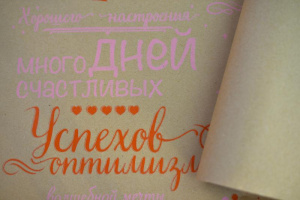 Хорошего настроения
много Дней
счастливых
Успехов
оптимизм